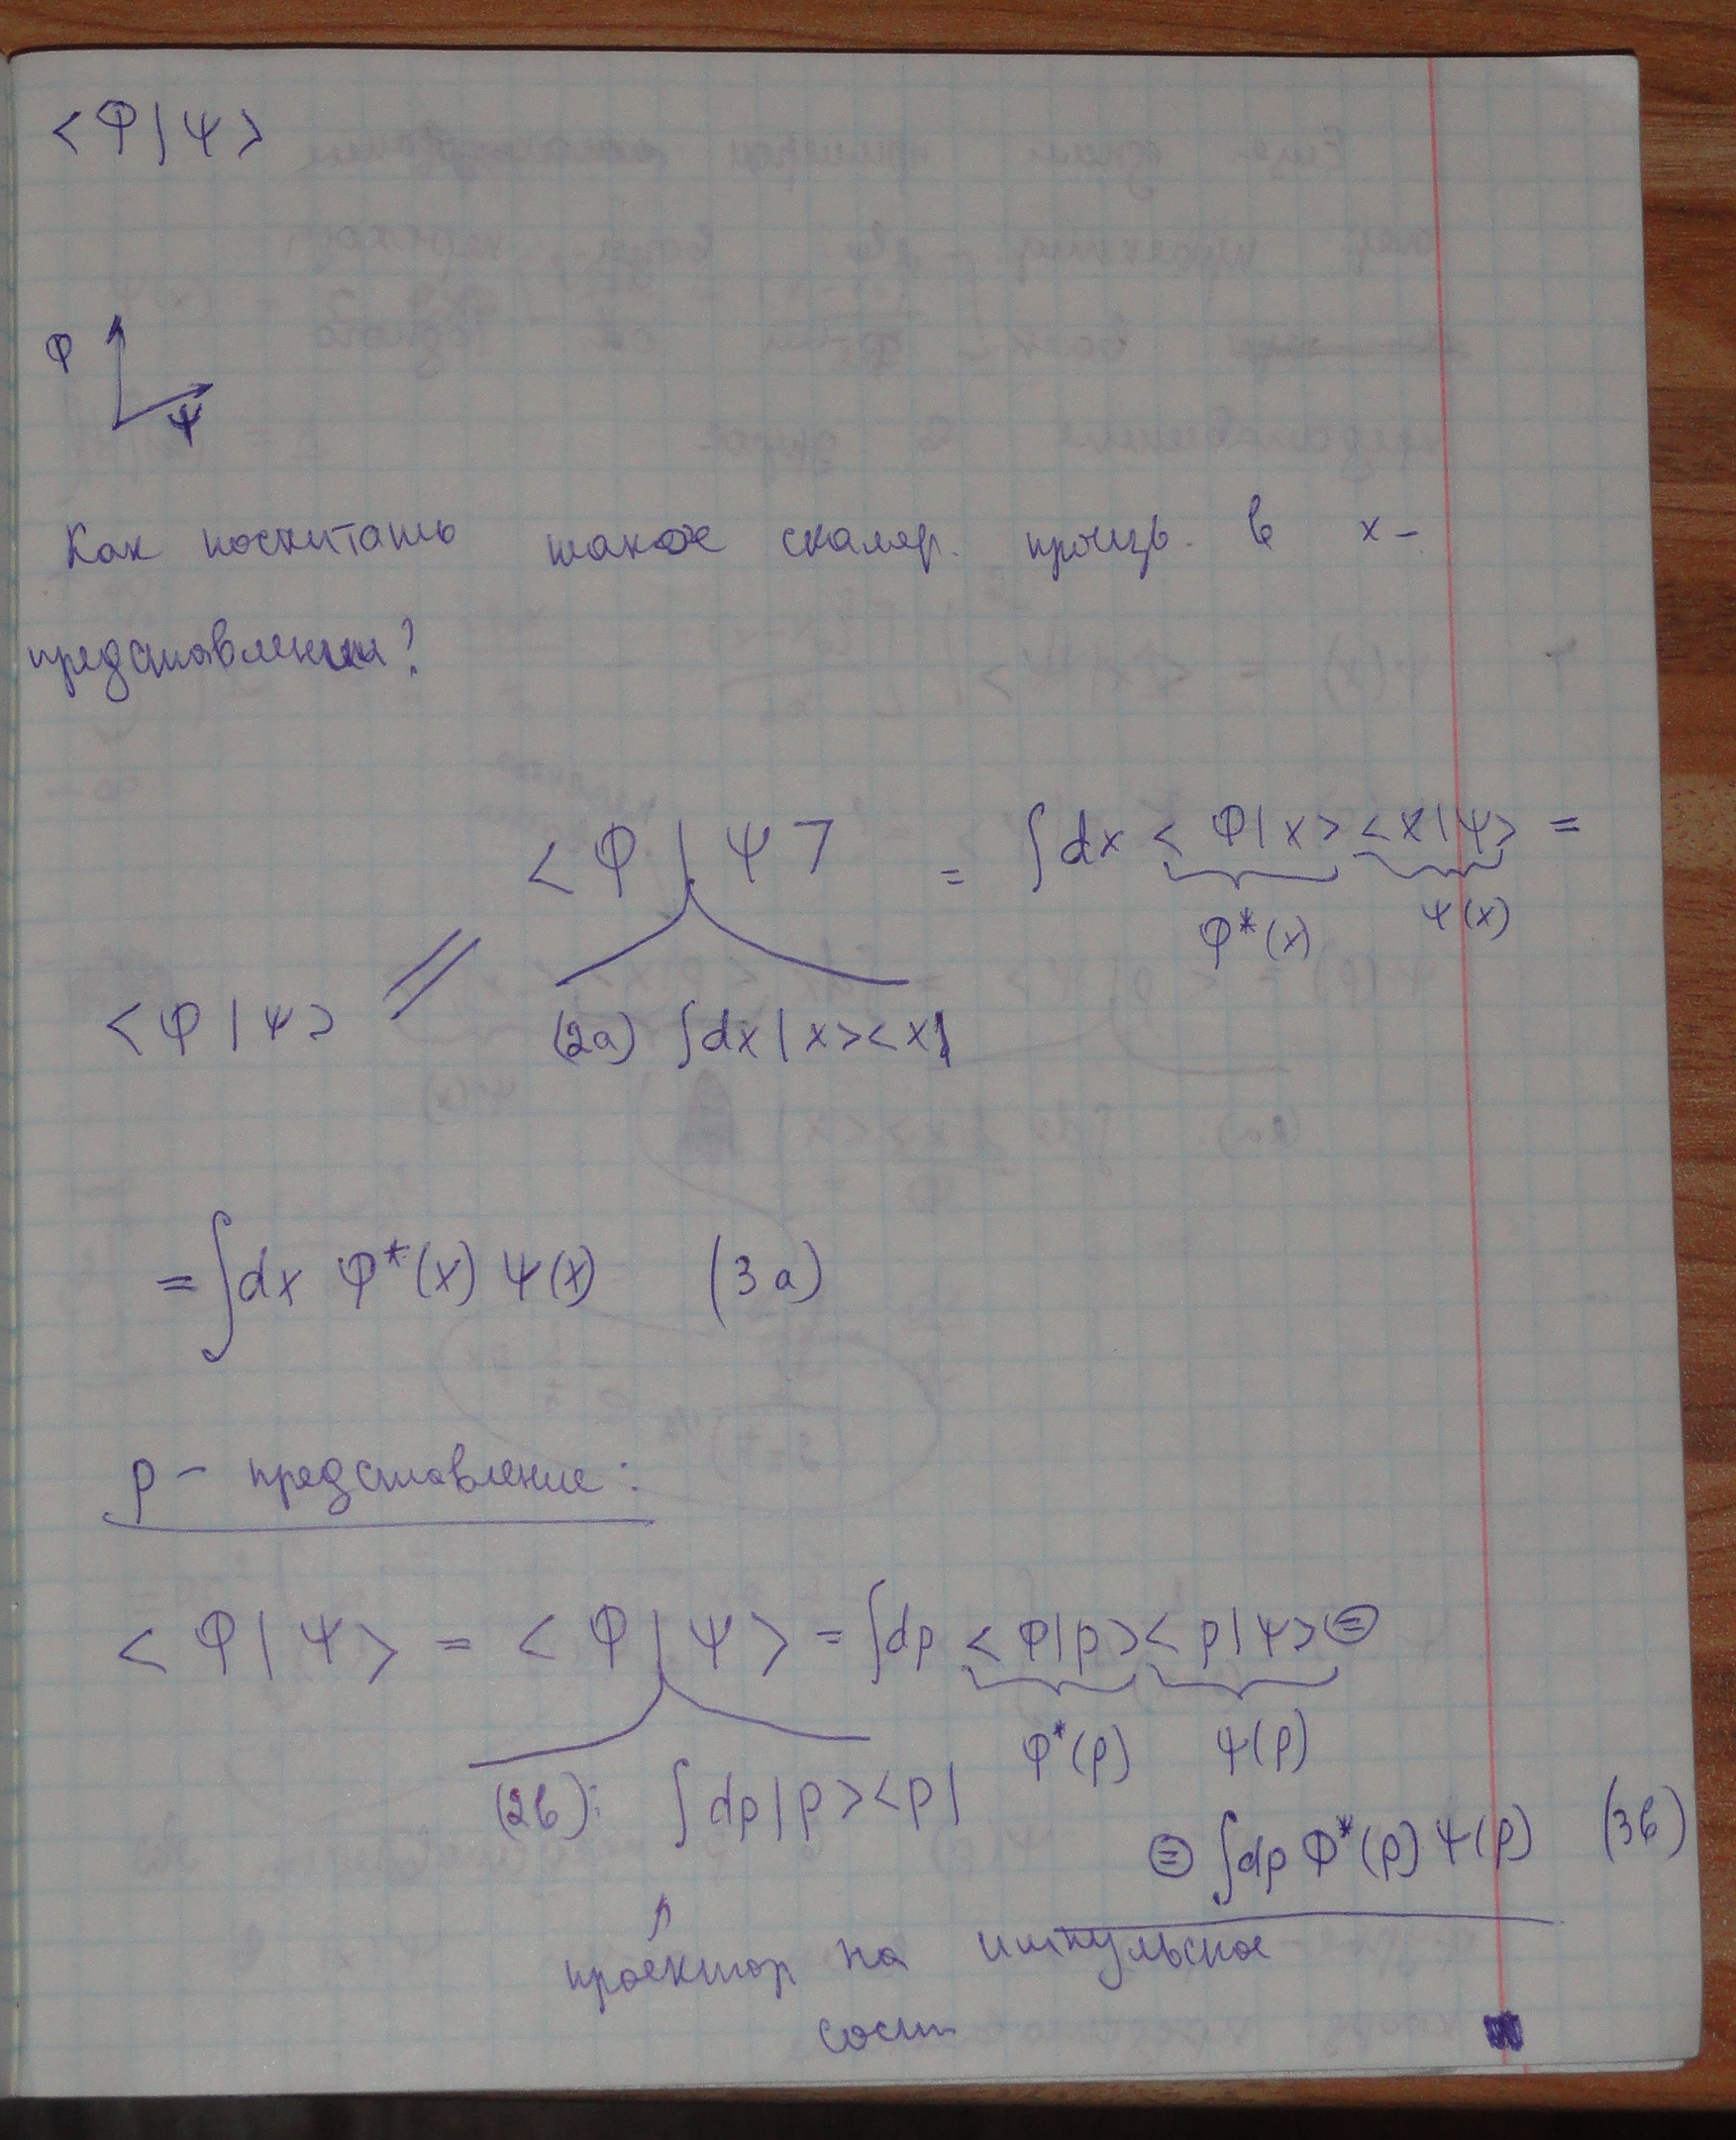 <φ|ψ>
φ
ψ
Как посчитать такое скаляр. произв. в x-
представлении?
<φ|ψ> = ∫dx <φ|x><x|ψ> =
φ*(x) ψ(x)
<φ|ψ> = (2a) ∫dx|x><x|
= ∫dx φ*(x) ψ(x) (3a)
p - представление:
<φ|ψ> = <φ|ψ> = ∫dp <φ|p><p|ψ> ⊜
φ*(p) ψ(p)
(2b): ∫dp|p><p|
⊜ ∫dp φ*(p) ψ(p) (3b)
проектор на импульсное
сост